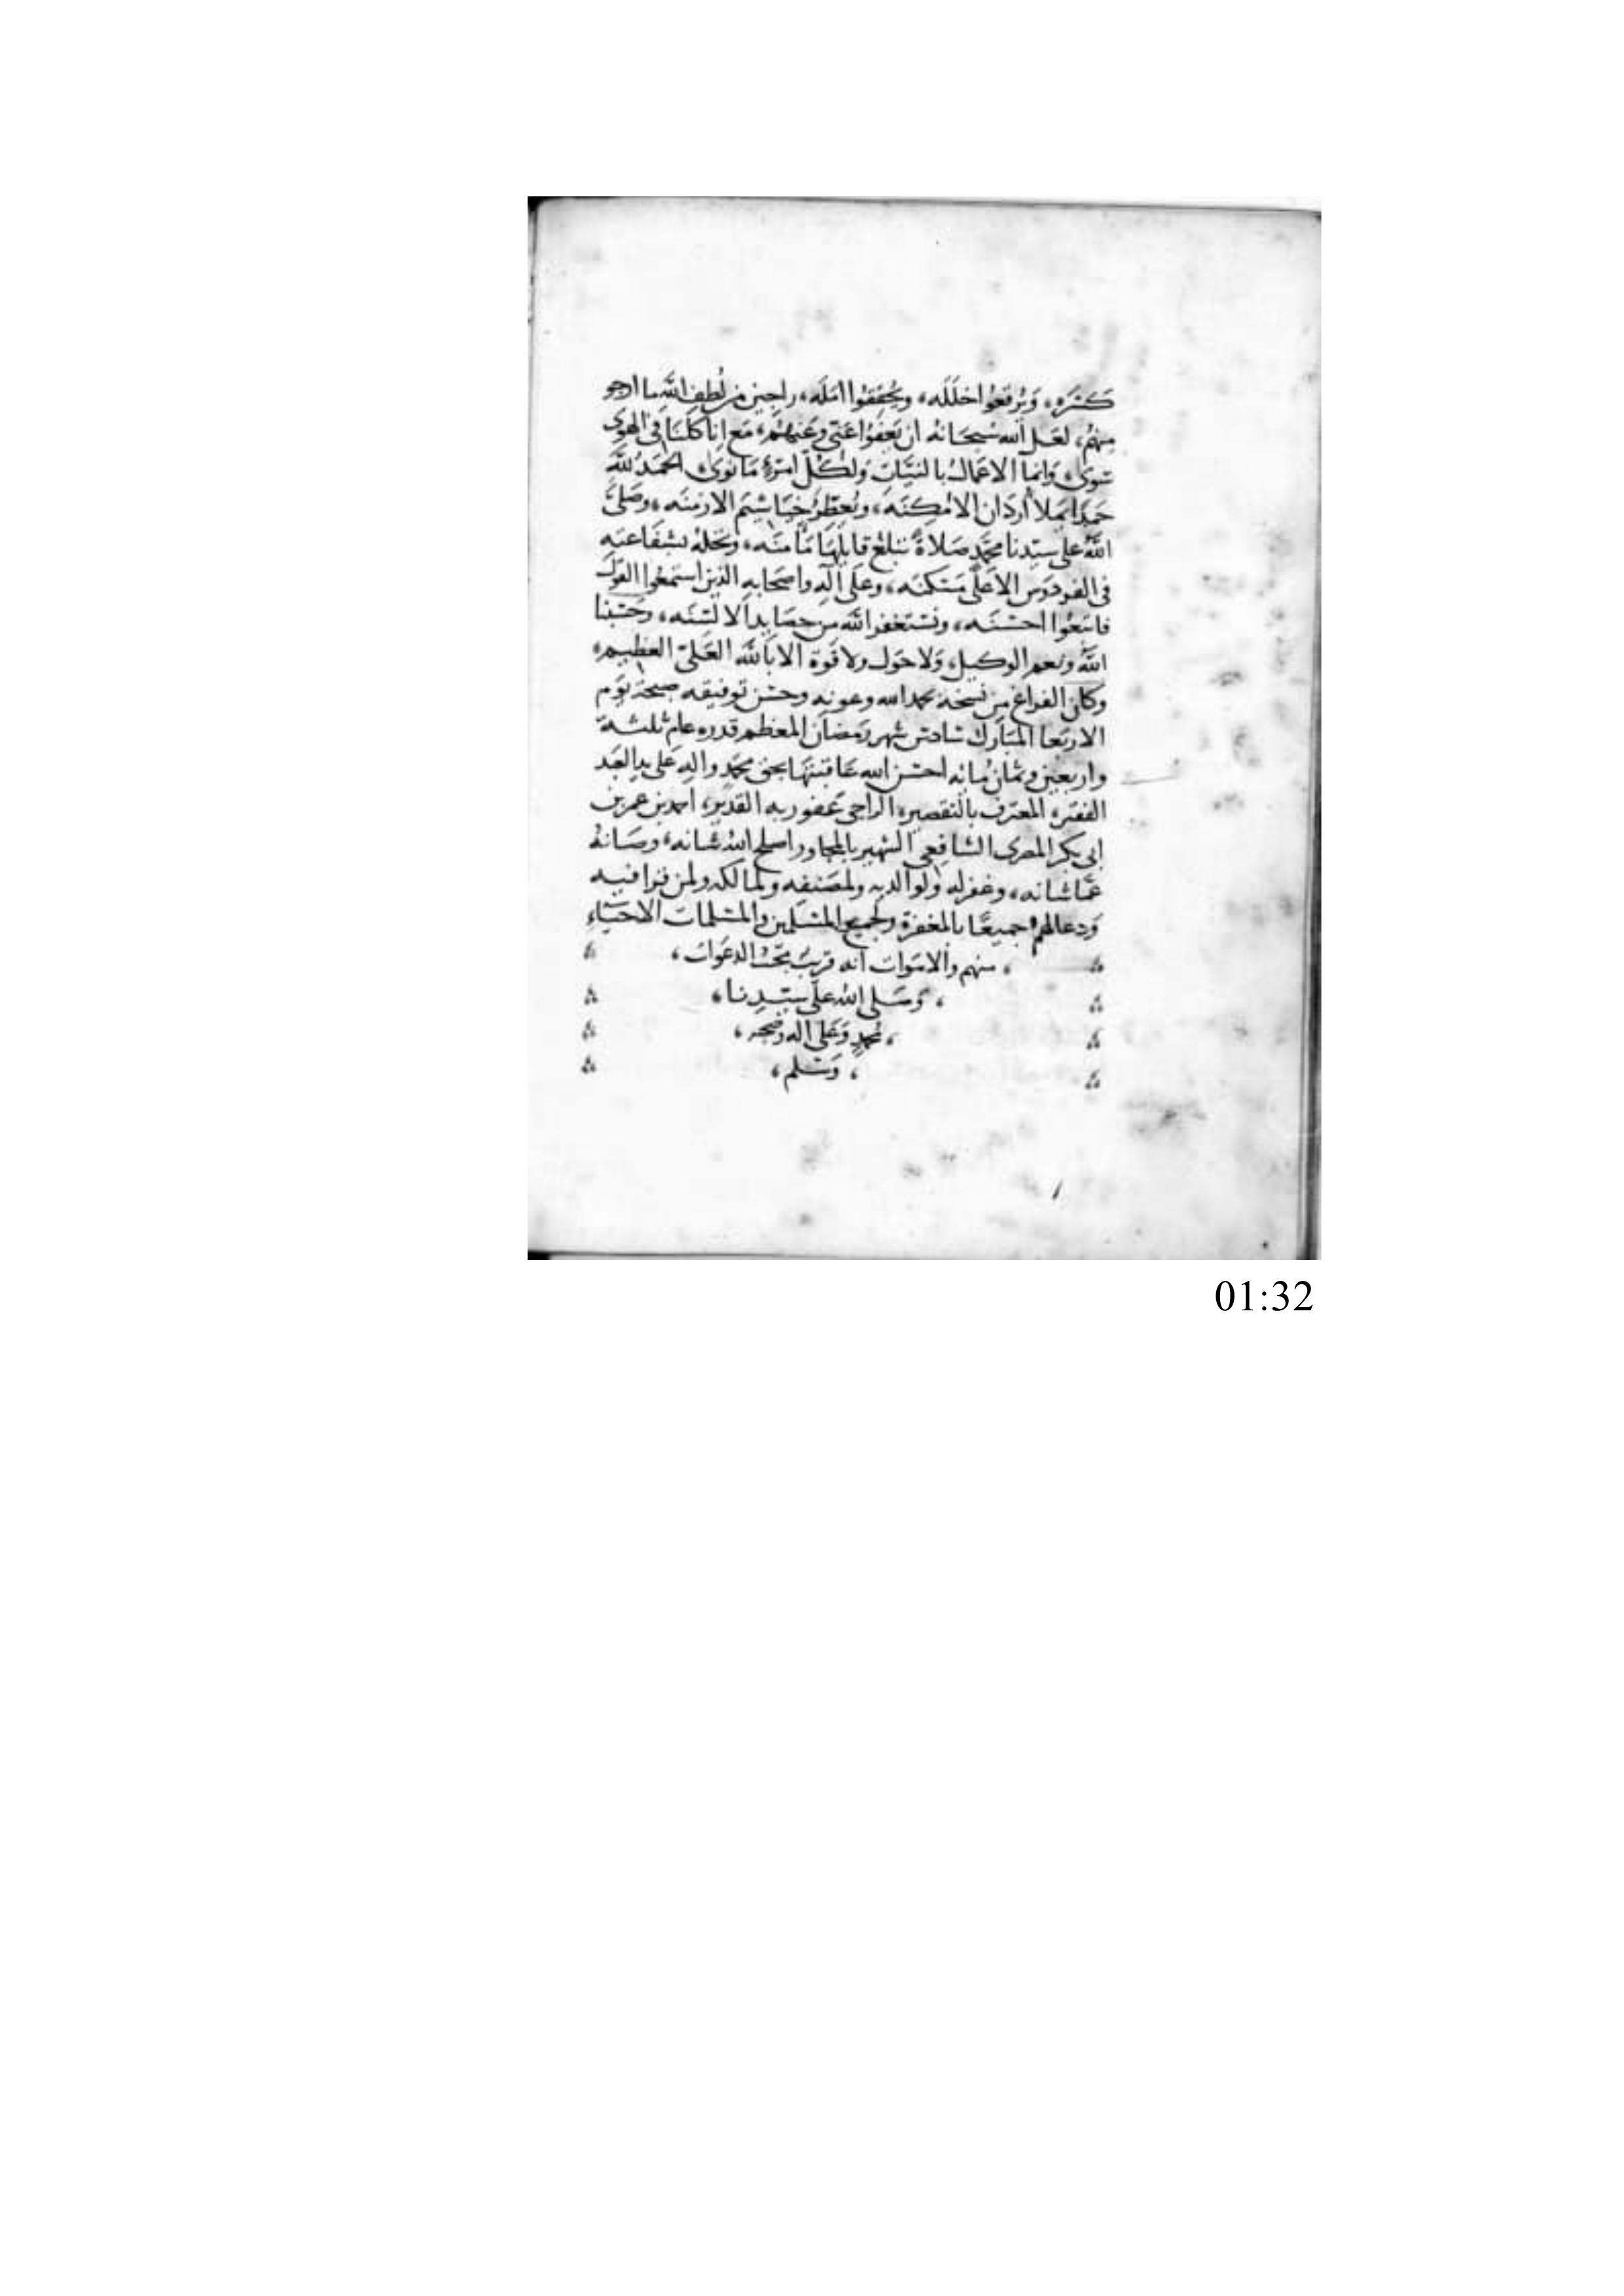 كسره، ويرقعوا خلله، ويحققوا امله، راجين من لطف الله ما ارجو
منهم، لعل الله سبحانه ان يعفوا عني وعنهم، مع اناكلنا في الهوى
سوى، وانما الاعمال بالنيات ولكل امرئ ما نوى، الحمد لله
حمدا يملأ اردان الامكنه، ويعطر خياشيم الازمنه، وصلى
الله على سيدنا محمد صلاة تبلغ قايلها مامنه، وتحله بشفاعته
في الفردوس الاعلى مسكنه، وعلى آله واصحابه الذين استمعوا القول
فاتبعوا احسنه، ونستغفر الله من حصايد الالسنه، وحسبنا
الله ونعم الوكيل، ولا حول ولا قوة الا بالله العلي العظيم،
وكان الفراغ من نسخه بحمد الله وعونه وحسن توفيقه صبحة يوم
الاربعا المبارك سادس شهر رمضان المعظم قدره عام ثلثة
واربعين وثمان مائه احسن الله عاقبتها بحق محمد واله على يد العبد
الفقير، المعترف بالتقصير، الراجي عفو ربه القدير، احمد بن عمر بن
ابي بكر المصرى الشافعي الشهير بالمجاور اصلح الله شانه، وصانه
عما شانه، وغفر له ولوالديه ولمصنفه ولمالكه ولمن قرا فيه
ودعا لهم جميعا بالمغفرة ولجميع المسلمين والمسلمات الاحياء
منهم والاموات انه قريب مجيب الدعوات،
وصلى الله على سيدنا،
محمد وعلى اله وصحبه،
وسلم،
01:32